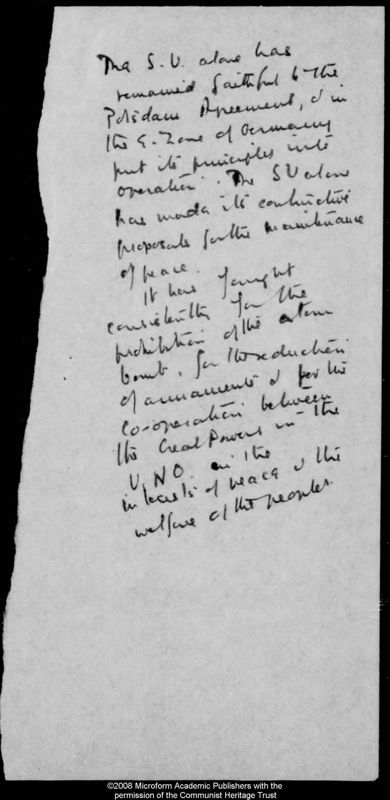 The S.U. alone has
remained faithful to the
Potsdam Agreement, & in
the E. Zone of Germany
put its principles into
operation. The SU alone
has made its constructive
proposals for the maintenance
of peace.
It has fought
consistently for the
prohibition of the atom
bomb, for the reduction
of armaments & for the
co-operation between
the Great Powers in the
UNO in the
interests of peace & the
welfare of the peoples.
©2008 Microform Academic Publishers with the
permission of the Communist Heritage Trust